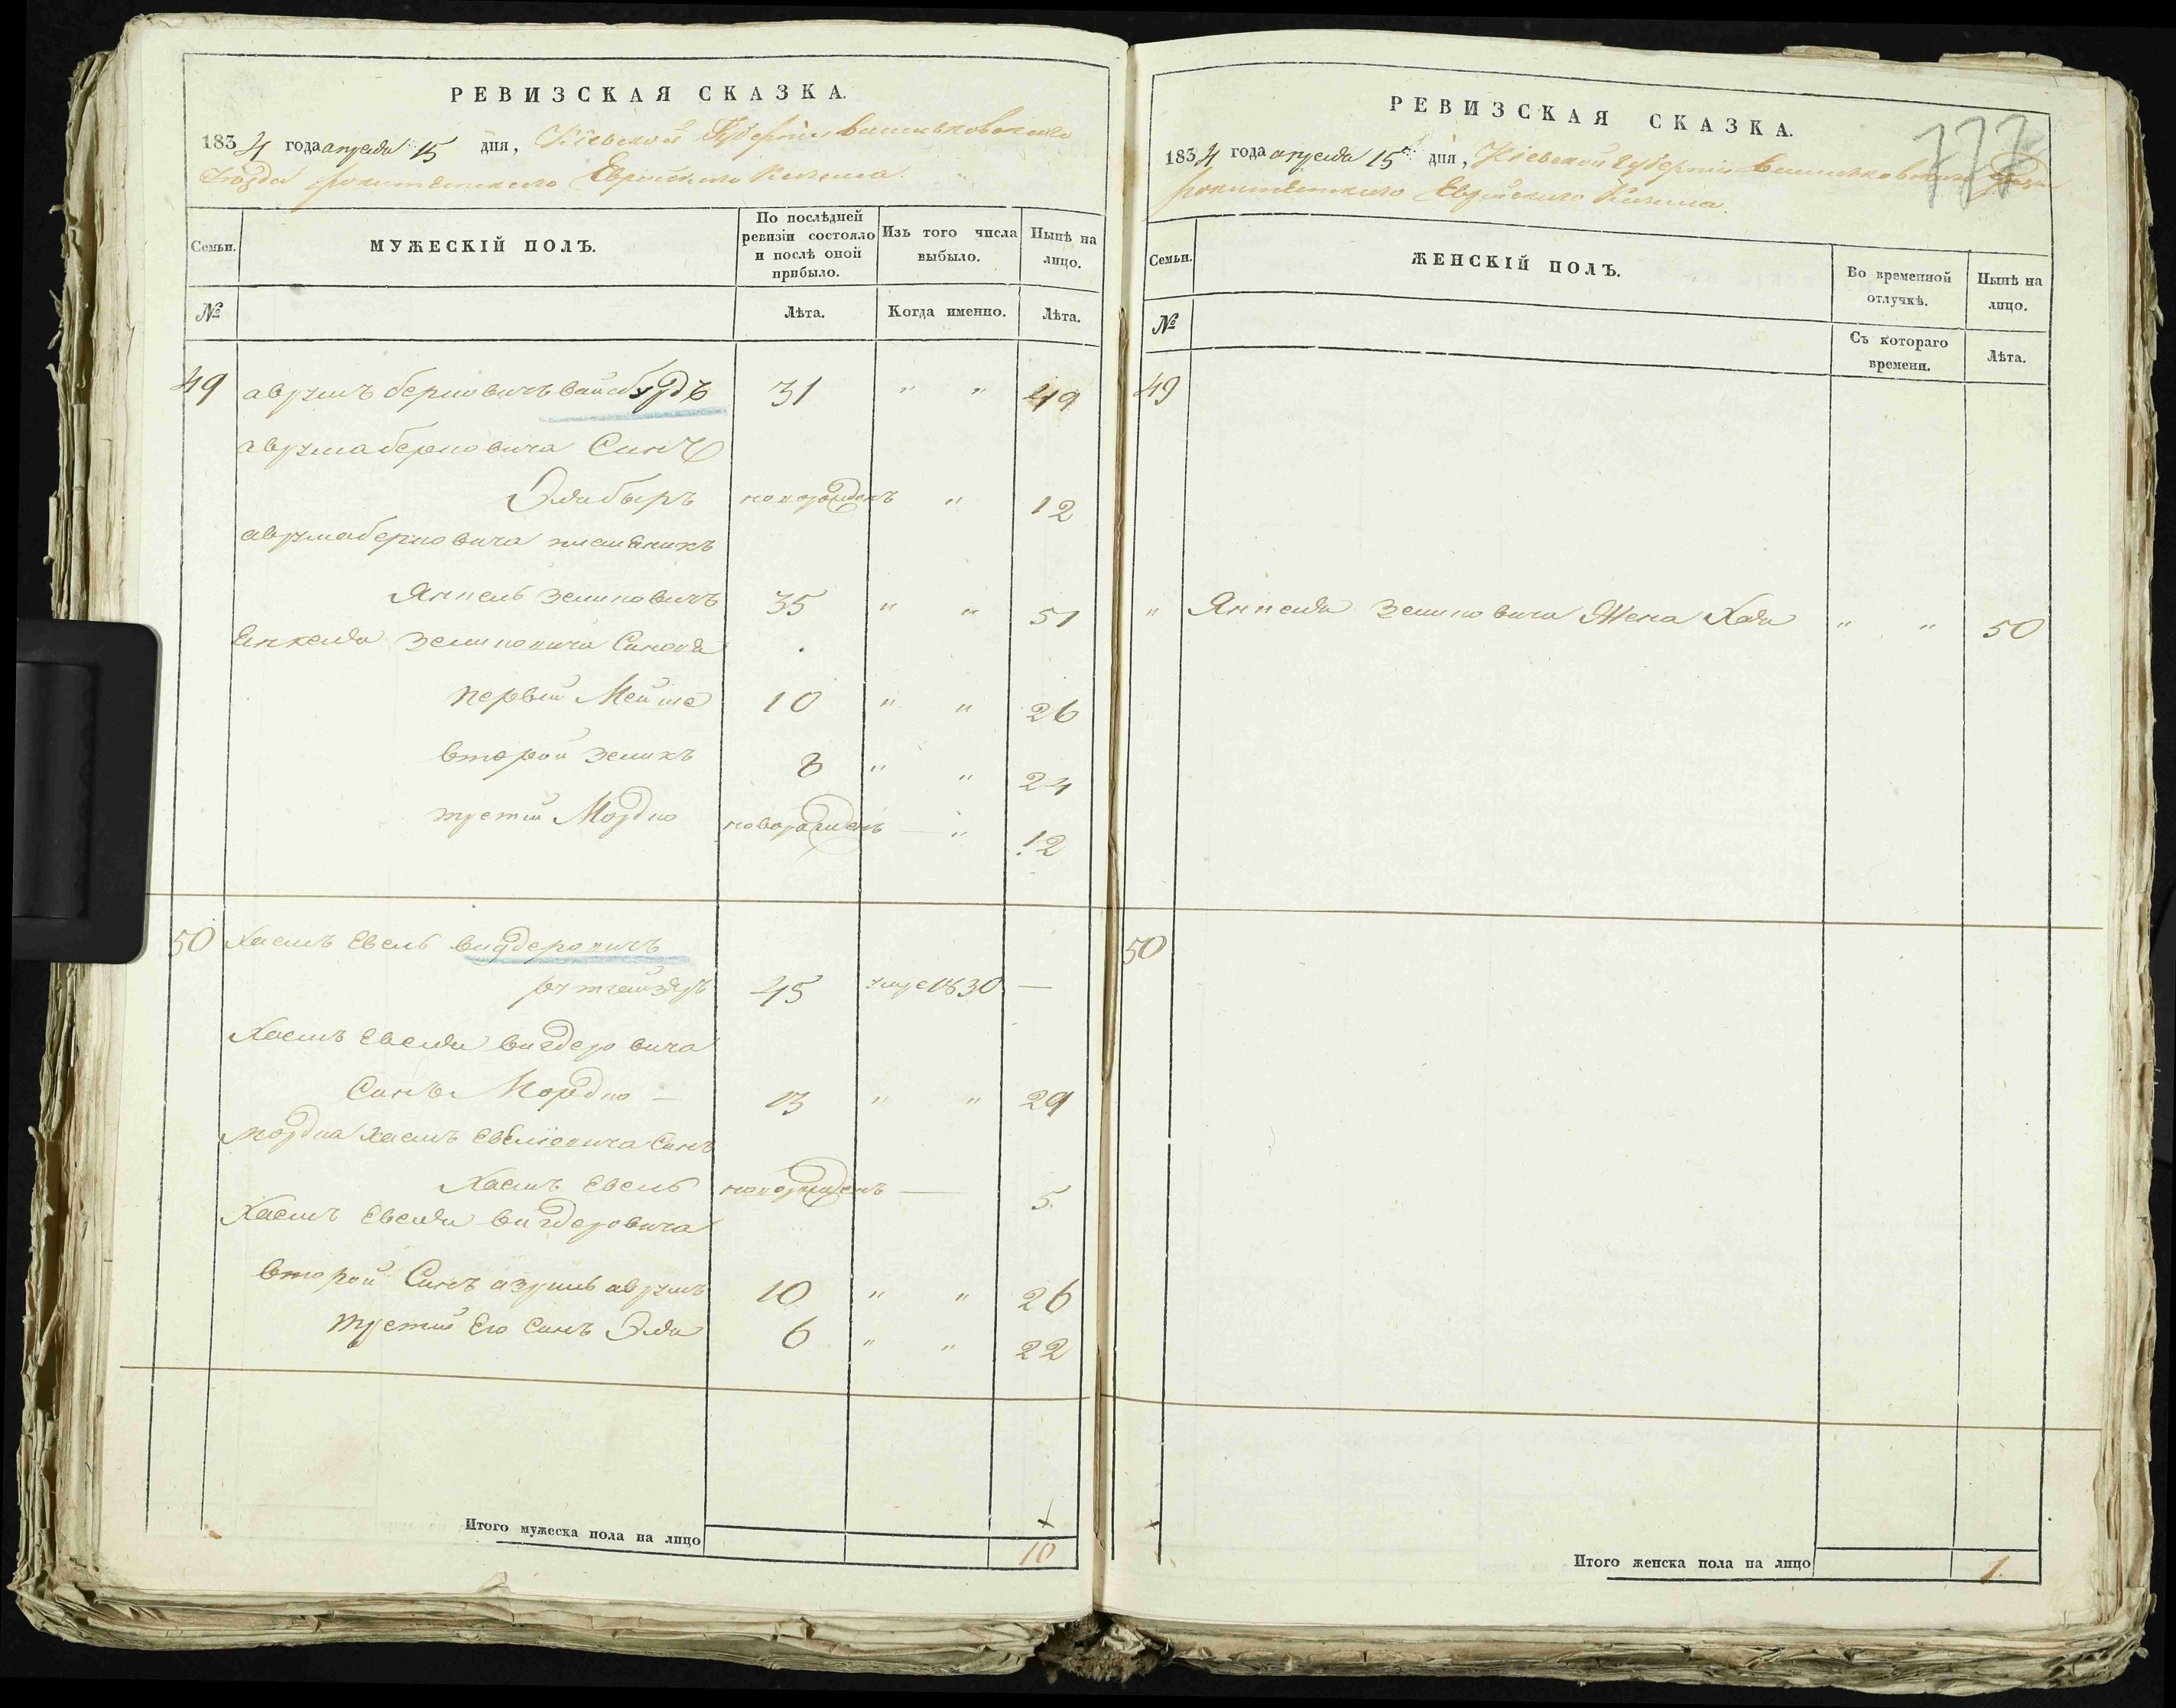 РЕВИЗСКАЯ СКАЗКА.
1834 года апреля 15 дня, Кіевской Губерніи Васильковскаго
уѣзда рокитянскаго Еврейского Кагала.
Семьи. МУЖЕСКІЙ ПОЛЪ. По послѣдней ревизіи состояло и послѣ оной прибыло. Изъ того числа выбыло. Нынѣ на лицо.
№ Лѣта. Когда именно. Лѣта.
49 аврумъ берковичъ 31 " " 49
аврума берковича Синъ
Эля быръ новорожденъ " 12
аврума берковича племеникъ
Янкель зеликовичъ 35 " " 51
Енкеля зеликовича Синовя
первий Мейше 10 " " 26
второй зеликъ 8 " " 24
третий Мордко новорожденъ — " 12
50 Хаемъ Евель вигдеровичъ
45 умре 1830 —
Хаемъ Евеля вигдеровича
Синъ Мордко — 13 " " 29
мордка хаемъ Евелiовича Синъ
Хаемъ Евель новорожденъ — 5.
Хаемъ Евеля вигдеровича
второй Синъ азриль аврумъ 10 " " 26
третий Его Синъ Эля 6 " " 22
Итого мужеска пола на лицо 10
РЕВИЗСКАЯ СКАЗКА.
1834 года апреля 15 дня, Кіевской Губерніи Васильковскаго уѣзда
рокитянскаго Еврейского Кагала.
Семьи. ЖЕНСКІЙ ПОЛЪ. Во временной отлучкѣ. Нынѣ на лицо.
№ Съ котораго времени. Лѣта.
49
" Янкеля зеликовича Жена Хая " " 50
50
Итого женска пола на лицо 1.